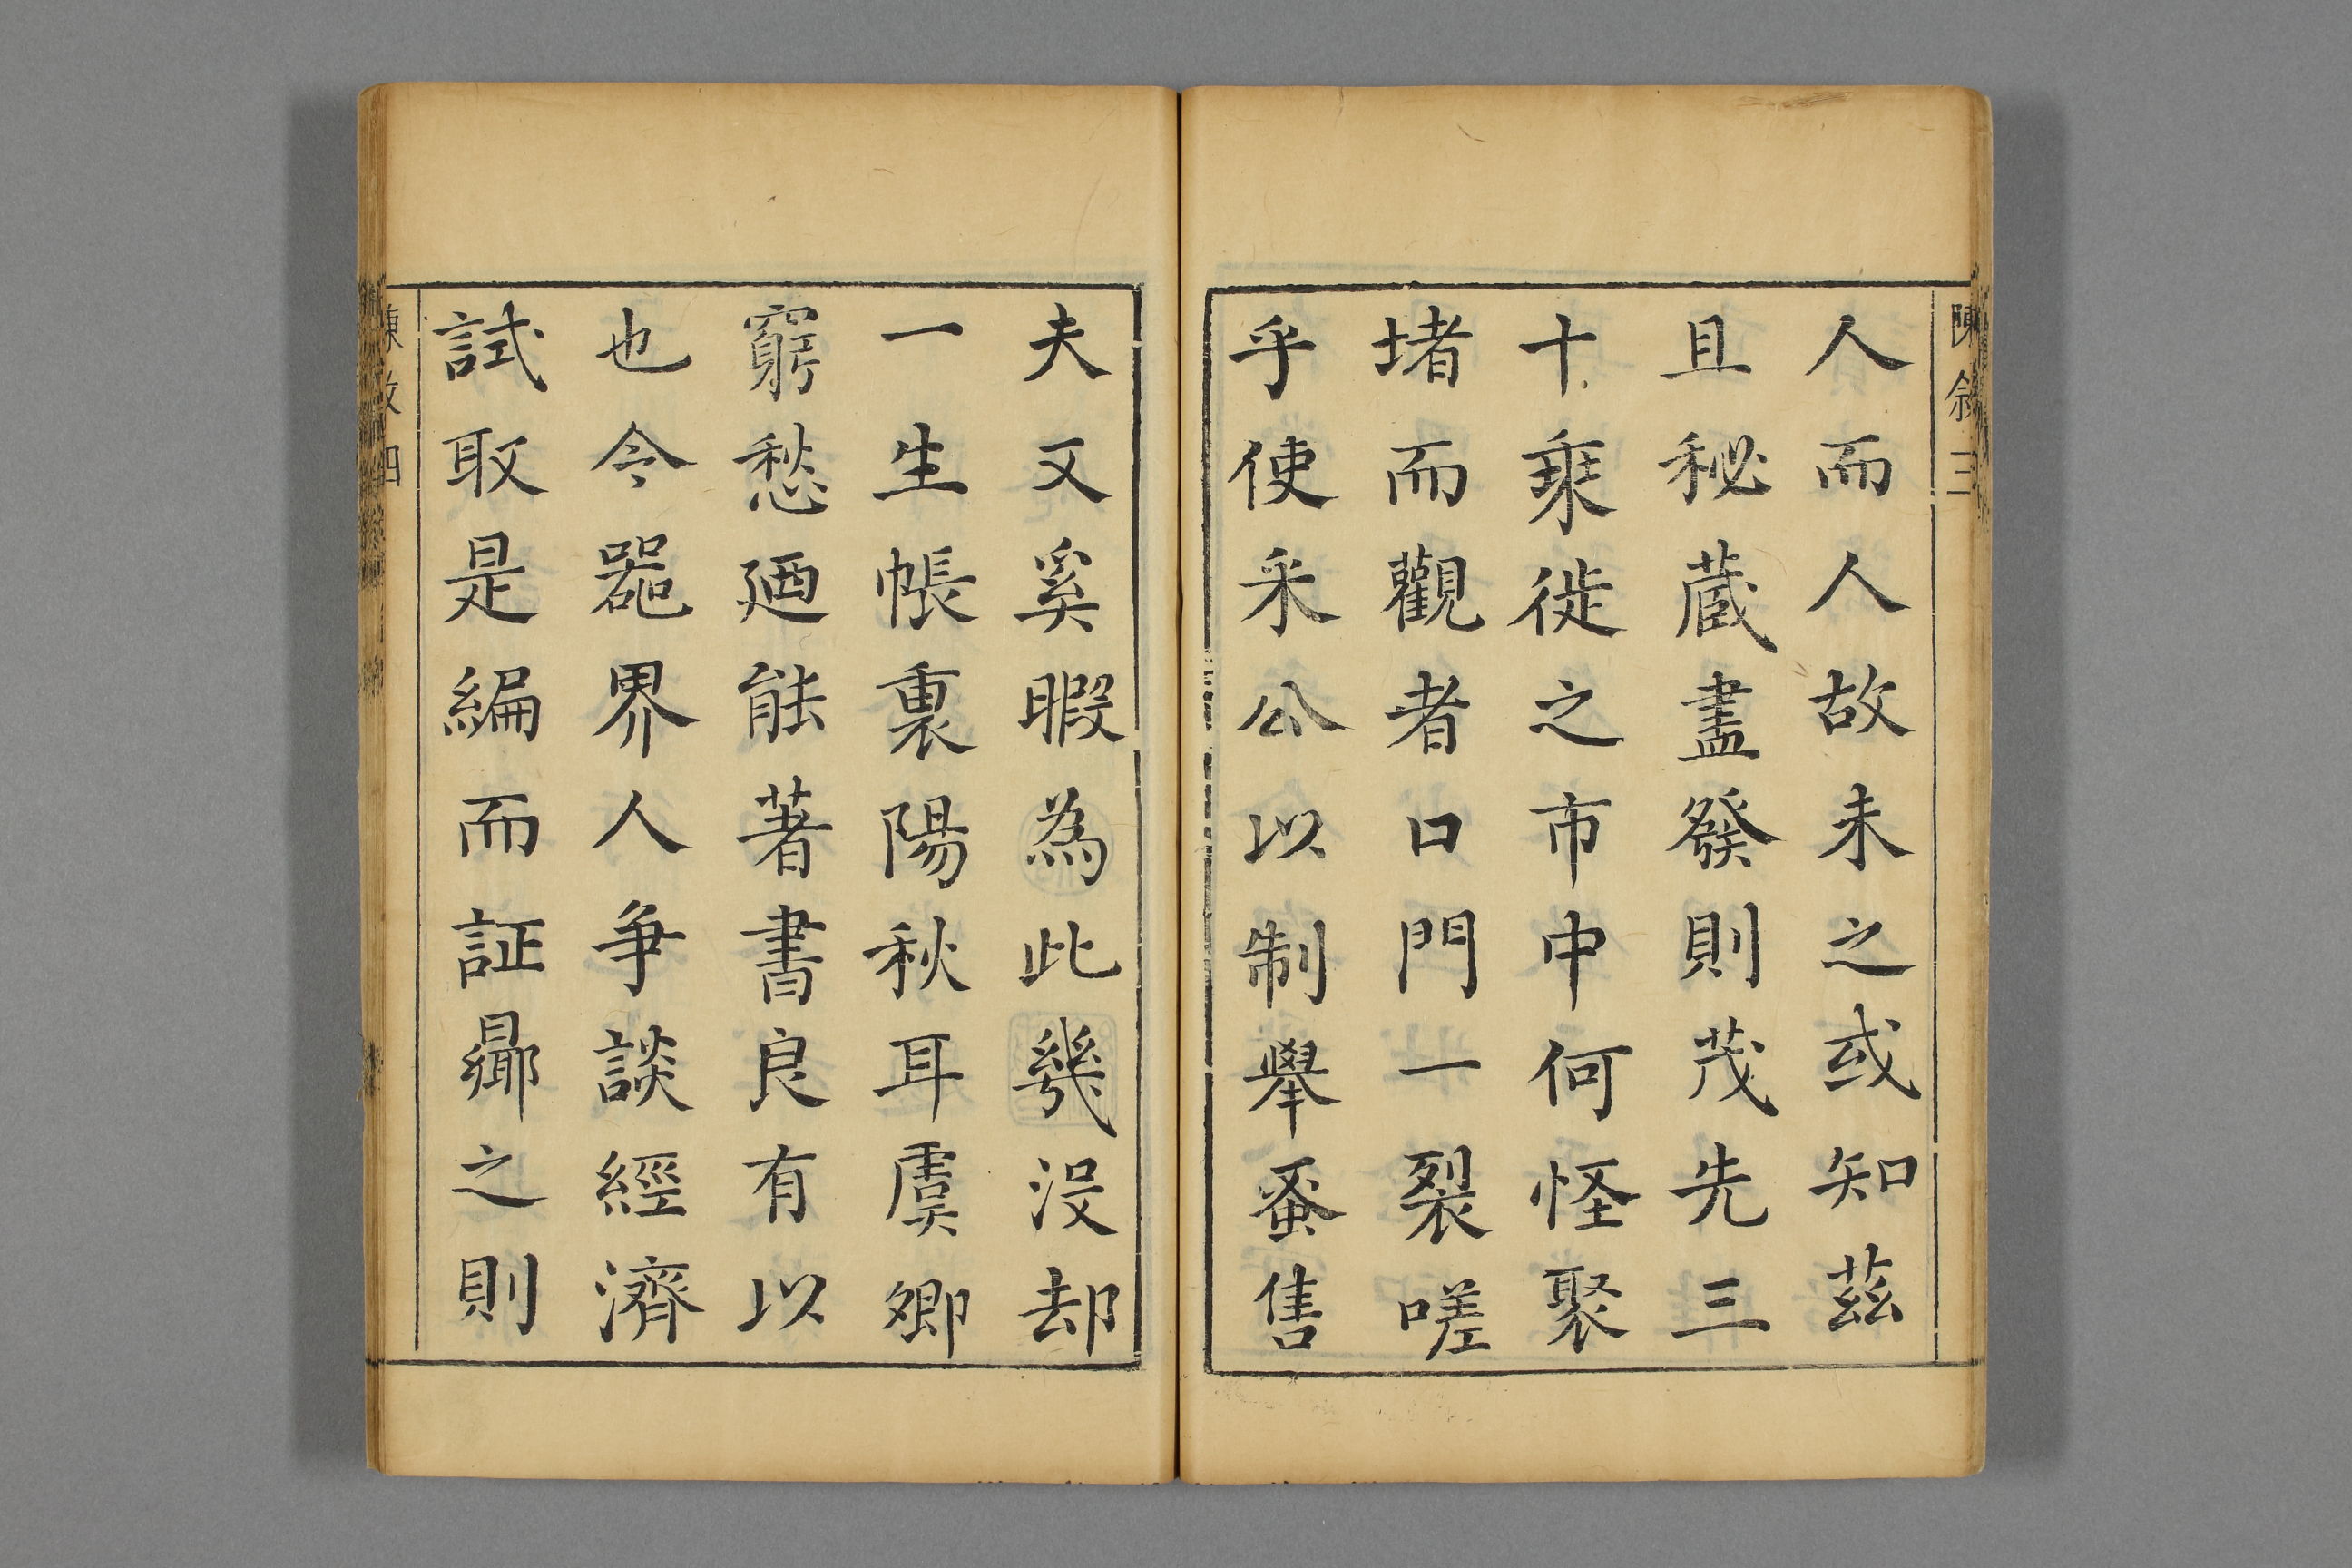 陳叙三
人而人故未之或知茲
且秘蔵盡發則茂先三
十乘徙之市中何怪聚
堵而觀者口門一裂嗟
乎使釆公以制舉蚤售
夫又奚暇為此㡬没却
一生帳裏陽秋耳虞卿
窮愁廼能著書良有以
也今噐界人爭談經濟
試取是編而証曏之則
陳敘四